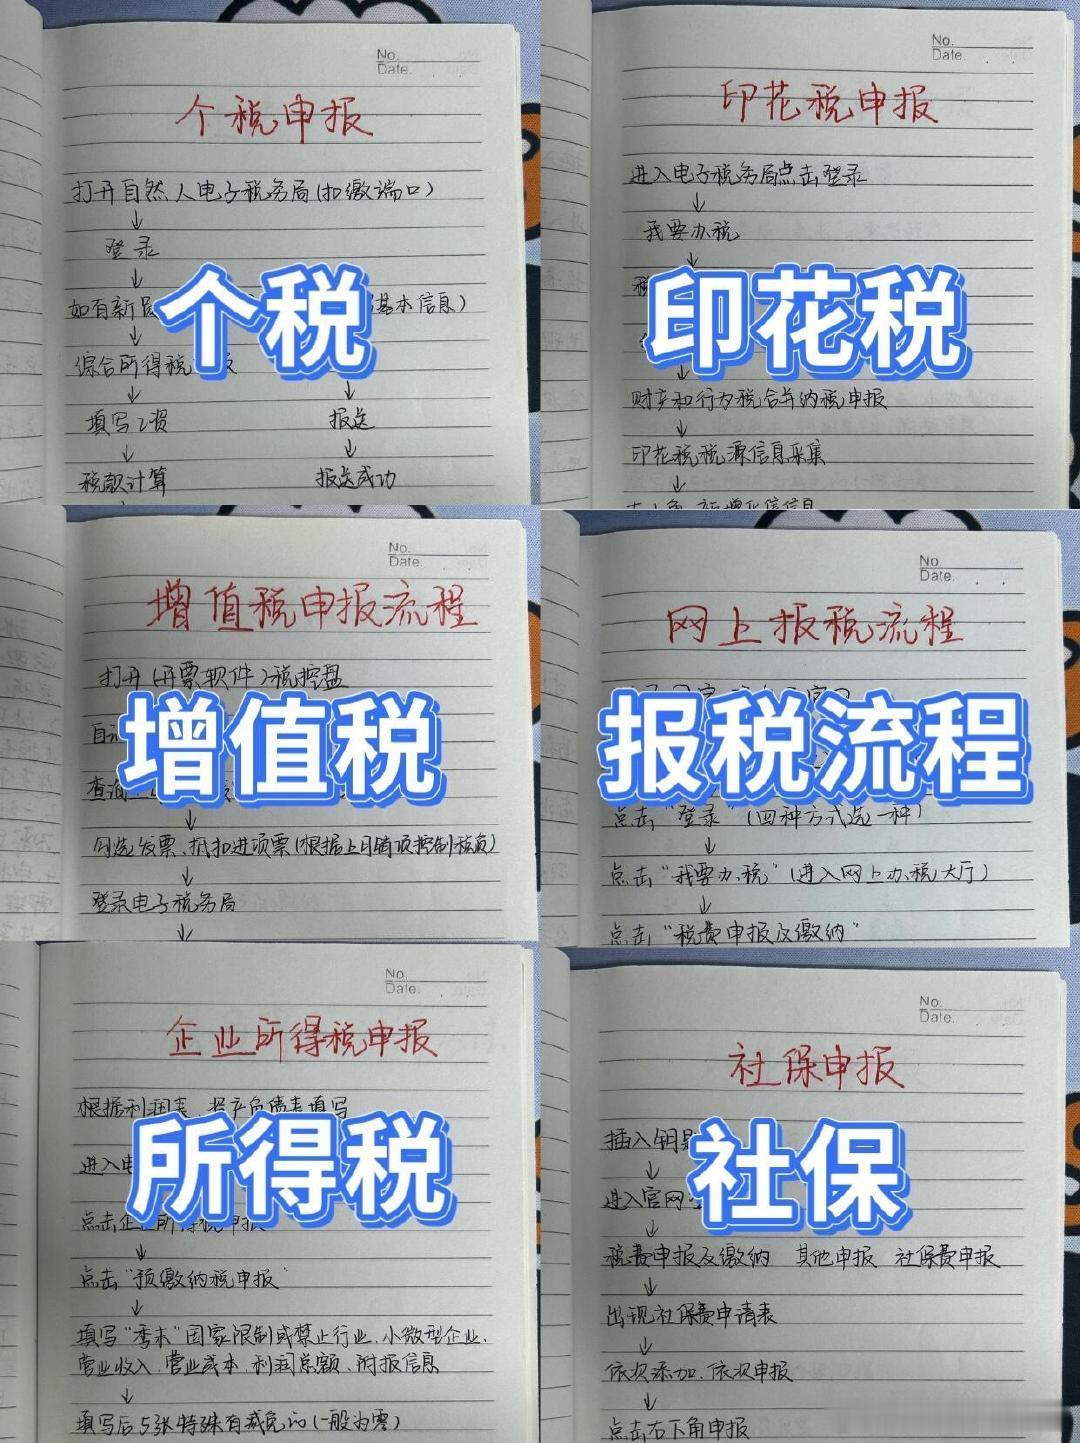 No.
Date.
个税申报
打开自然人电子税务局(扣缴端口)
↓
登录
↓
如有新 基本信息)
个税
↓
综合所得税
↓ ↓
填写工资 报送
↓ ↓
税款计算 报送成功
No.
Date.
印花税申报
进入电子税务局点击登录
↓
我要办税
↓
印花税
↓
财产和行为税合并纳税申报
↓
印花税税源信息采集
↓
No.
Date.
增值税申报流程
打开(开票软件)税控盘
增值税
查询
↓
勾选发票、抵扣进项票(根据上月销项控制税负)
↓
登录电子税务局
↓
No.
Date.
网上报税流程
报税流程
点击“登录”(四种方式选一种)
↓
点击“我要办税”(进入网上办税大厅)
↓
点击“税费申报及缴纳”
No.
Date.
企业所得税申报
根据利润表、资产负债表填写
进入电
所得税
点击企业所得税申报
↓
点击“预缴纳税申报”
↓
填写“季末”国家限制或禁止行业、小微型企业、
营业收入、营业成本、利润总额、附报信息
↓
填写后5张特殊有减免的(一般为零)
No.
Date.
社保申报
插入钥匙
↓
社保
进入官网
↓
税费申报及缴纳 其他申报 社保费申报
↓
出现社保费申请表
↓
依次添加、依次申报
↓
点击右下角申报